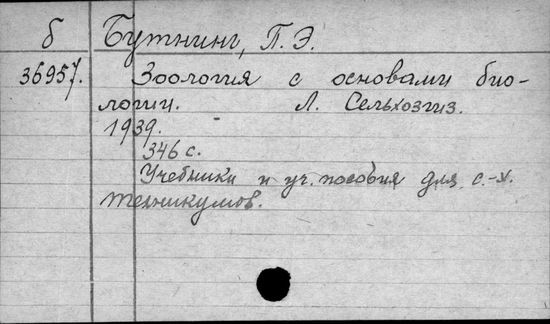 б Бутнинг, П. Э.
36957. Зоология с основами био-
логии. Л. Сельхозгиз.
1939.
346 с.
Учебники и уч. пособия для с.-х.
техникумов.